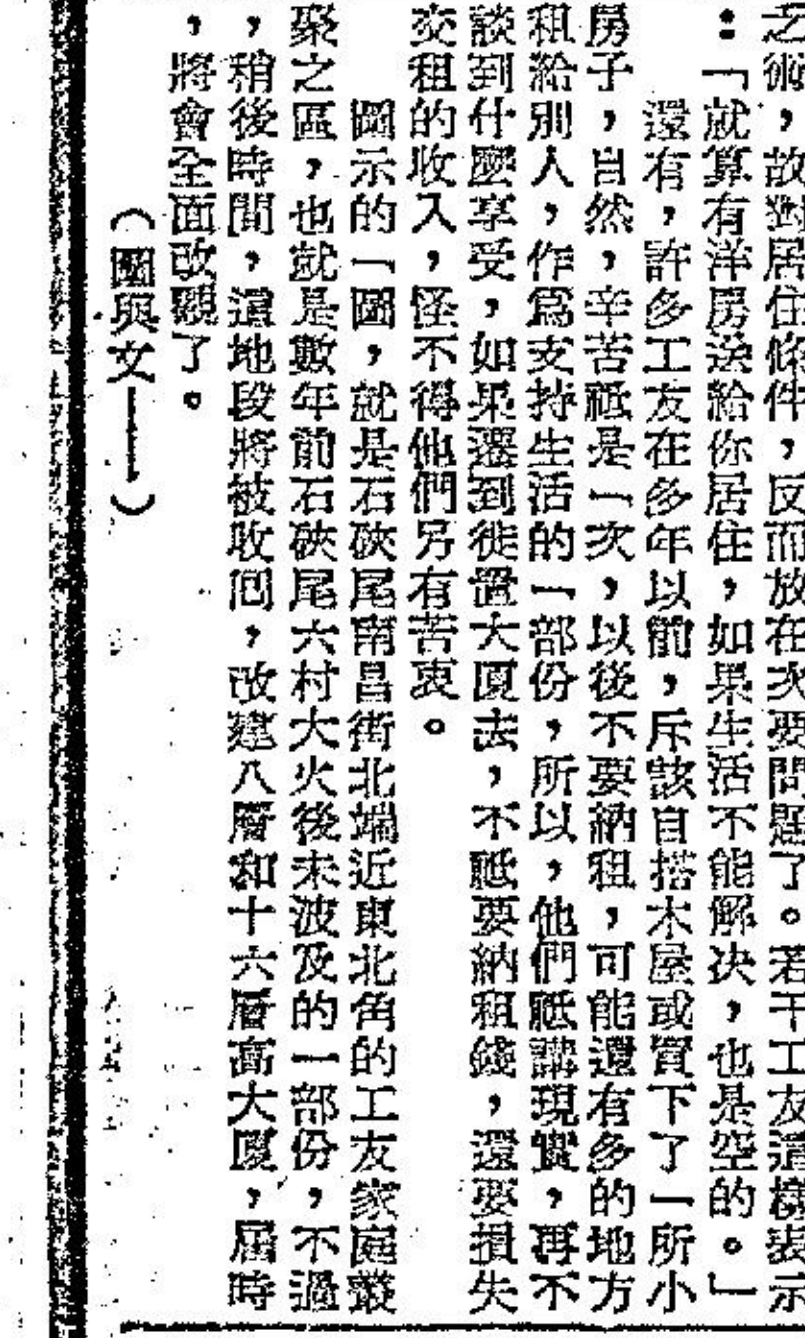 之術，故對居住條件，反而放在次要問題了。若干工友這樣表示
：「就算有洋房送給你居住，如果生活不能解決，也是空的。」
還有，許多工友在多年以前，斥該自搭木屋或買下了一所小
房子，自然，辛苦祗是一次，以後不要納租，可能還有多的地方
租給別人，作爲支持生活的一部份，所以，他們祗講現實，再不
談到什麼享受，如果遷到徙置大厦去，不祗要納租錢，還要損失
交租的收入，怪不得他們另有苦衷。
圖示的「圖，就是石硤尾南昌街北端近東北角的工友家庭叢
聚之區，也就是數年前石硤尾六村大火後未波及的一部份，不過
，稍後時間，這地段將被收回，改建八層和十六層高大厦，屆時
，將會全面改觀了。
（圖與文——）